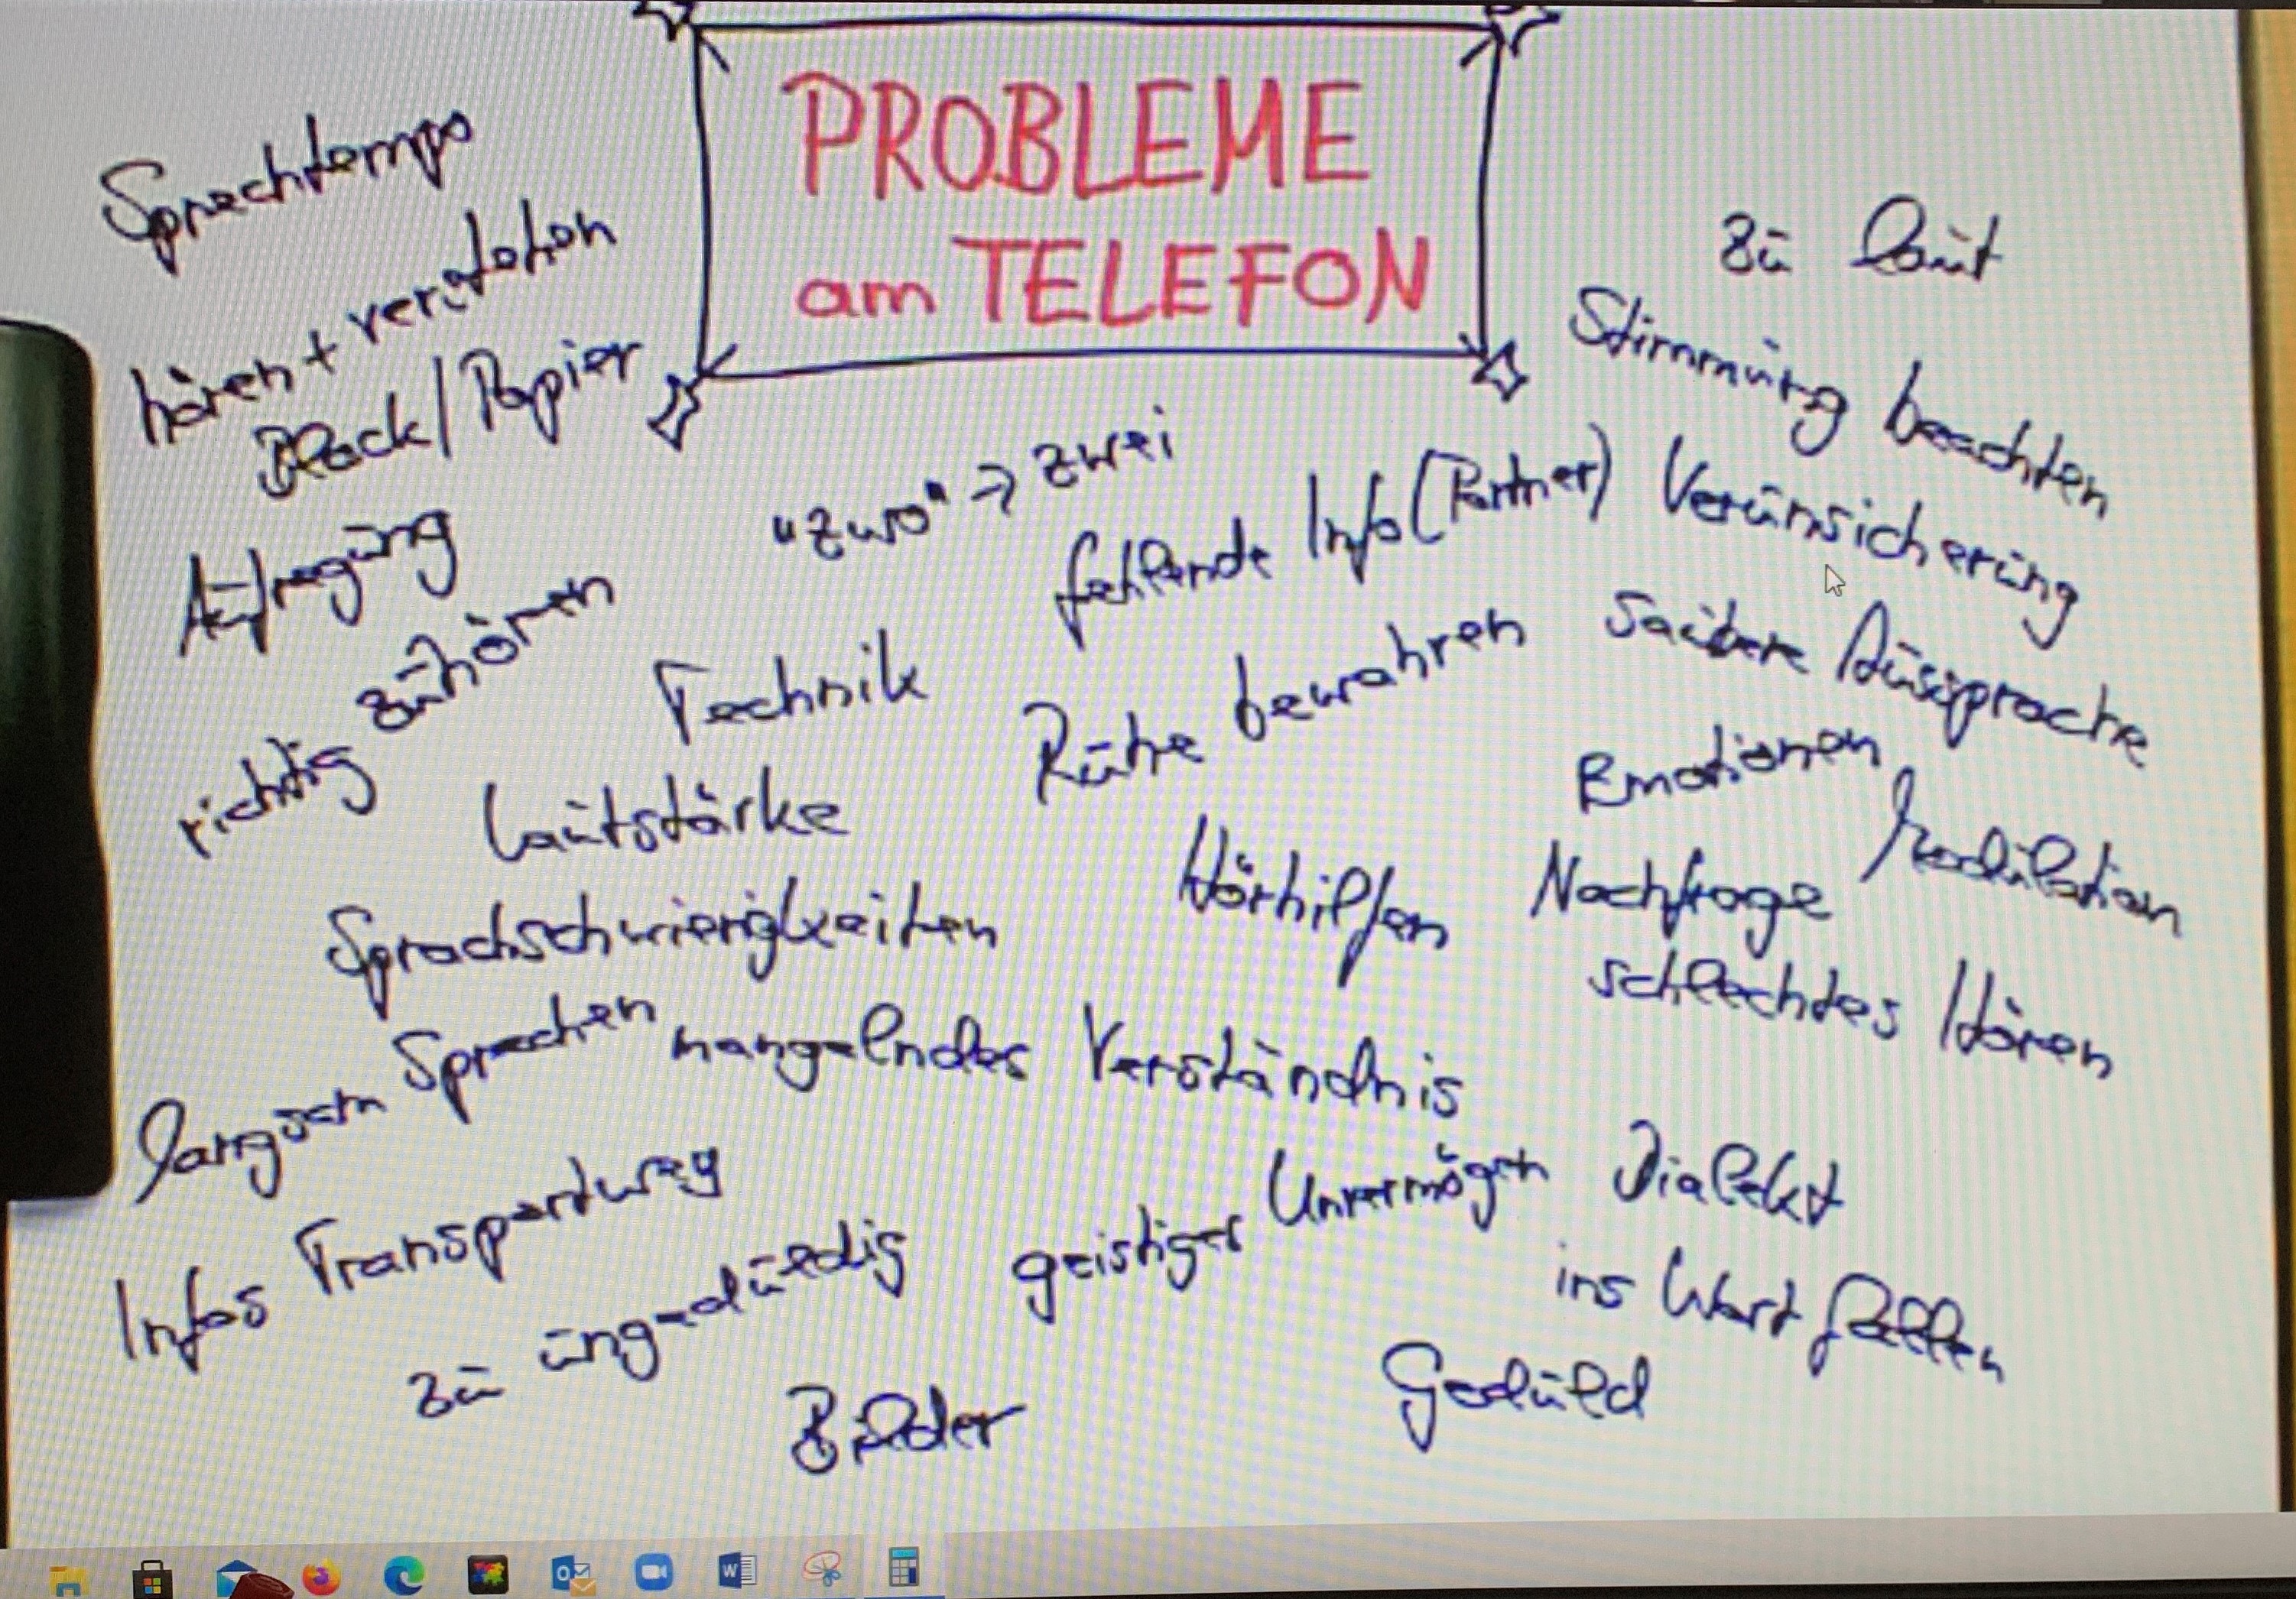 PROBLEME
am TELEFON
Sprechtempo
hören + verstehen
Block/Papier
Aufregung
richtig zuhören
"zwo" → zwei
Technik
Lautstärke
Sprachschwierigkeiten
langsam Sprechen
mangelndes Verständnis
Infos Transportweg
zu ungeduldig
Bilder
fehlende Info (Partner)
Ruhe bewahren
Hörhilfen
geistiges Unvermögen
zu laut
Stimmung beachten
Verunsicherung
saubere Aussprache
Emotionen
Modulation
Nachfrage
schlechtes Hören
Dialekt
ins Wort fallen
Geduld